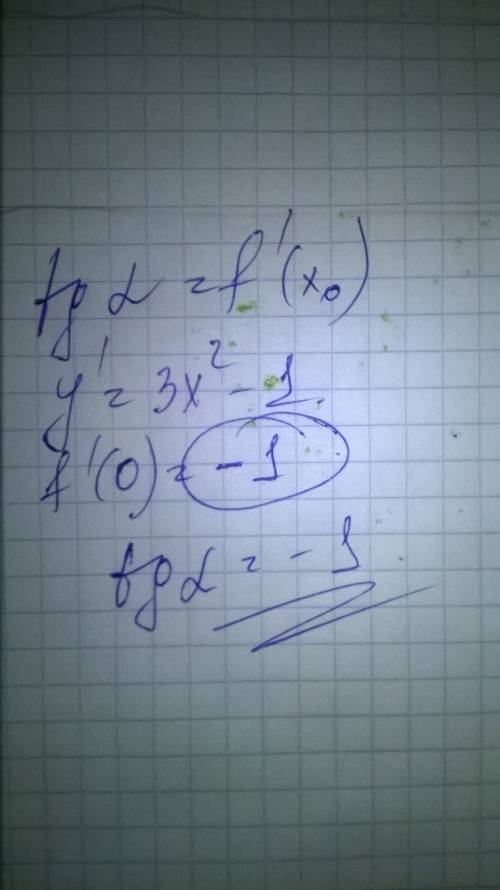 tg α = f'(x₀)
y' = 3x² - 1
f'(0) = -1
tg α = -1